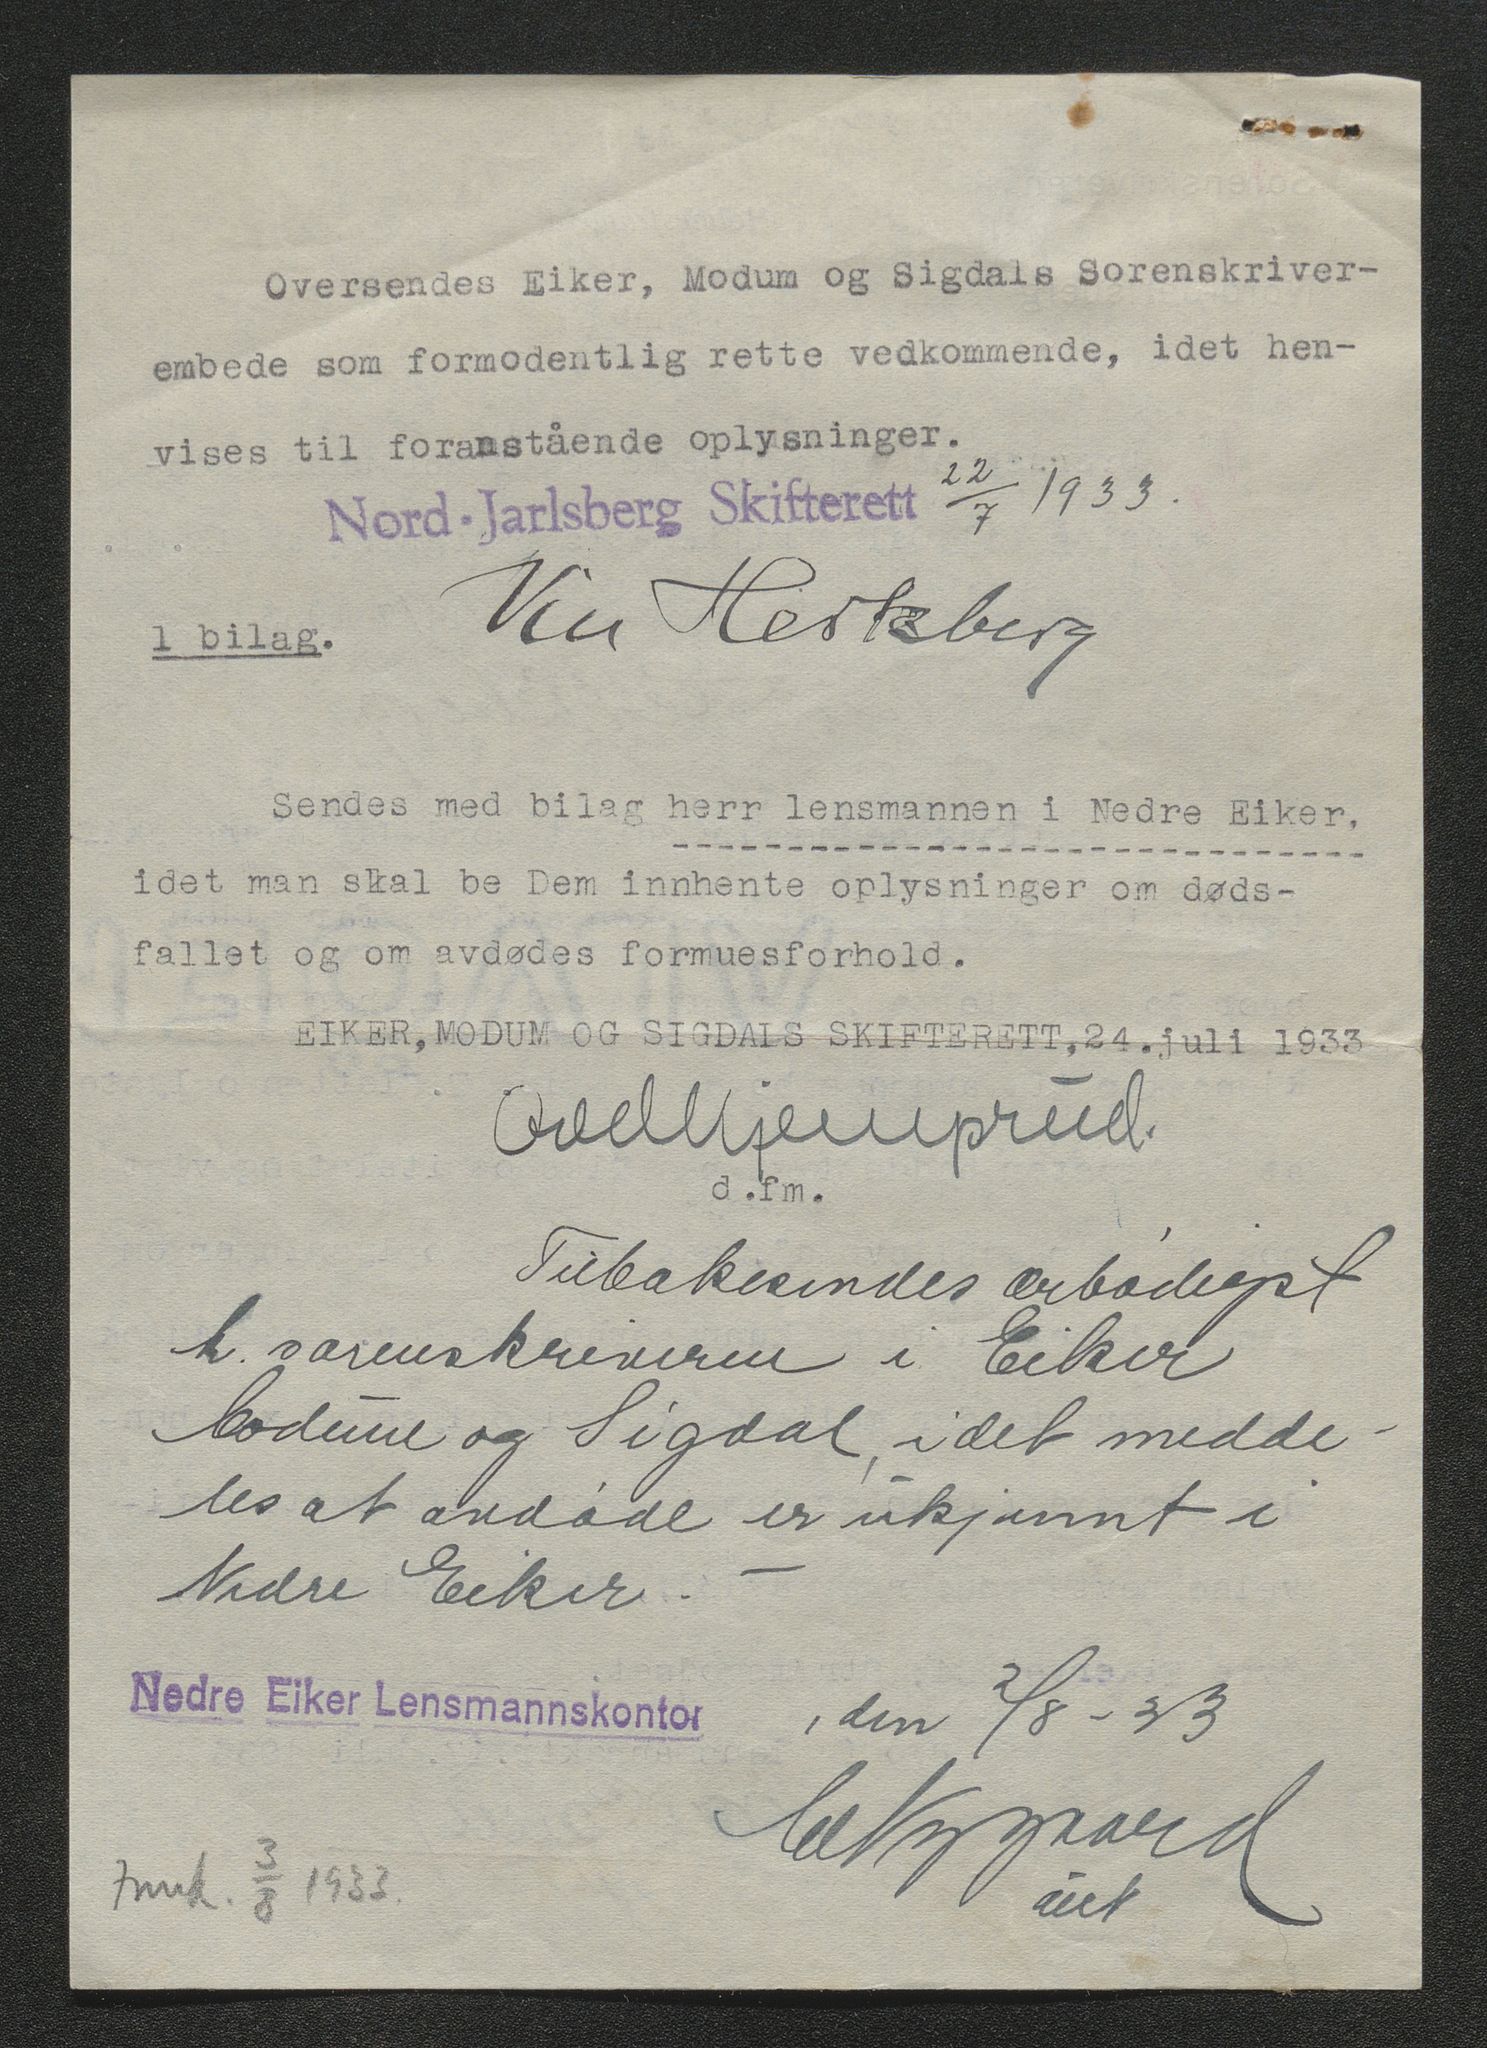 Oversendes Eiker, Modum og Sigdals Sorenskriver-
embede som formodentlig rette vedkommende, idet hen-
vises til foranstående oplysninger.
Nord-Jarlsberg Skifterett 22/7 1933.
Hertzberg
1 bilag.
Sendes med bilag herr lensmannen i Nedre Eiker,
idet man skal be Dem innhente oplysninger om døds-
fallet og om avdødes formuesforhold.
EIKER, MODUM OG SIGDALS SKIFTERETT, 24. juli 1933
d.fm.
Tilbakesendes ærbødigst
h. sorenskriveren i Eiker
Modum og Sigdal, idet medde-
les at avdøde er ukjennt i
Nedre Eiker. -
Nedre Eiker Lensmannskontor, den 2/8 - 33
Nygaard
3/8 1933.